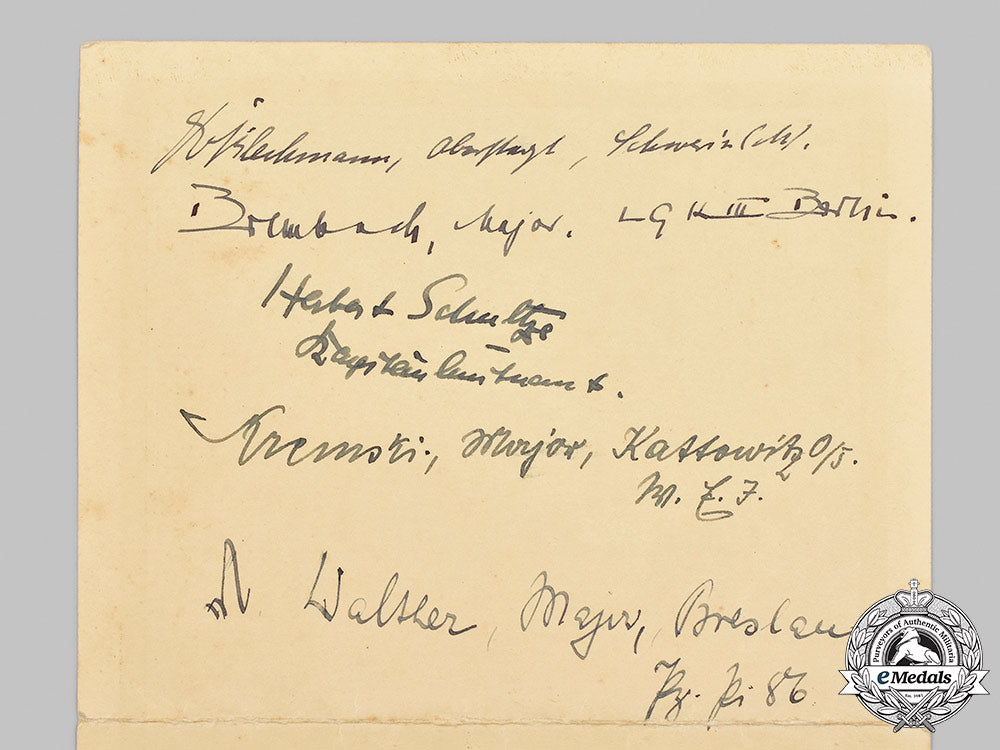 Oberstarzt, Schwerin (M).
Brembach, Major. LGK III Berlin.
Herbert Schultze
Kapitänleutnant.
Kremski, Major, Kattowitz O/S.
W. E. I.
A. Walther, Major, Breslau
Pz. Pi 86
Purveyors of Authentic Militaria
eMedals